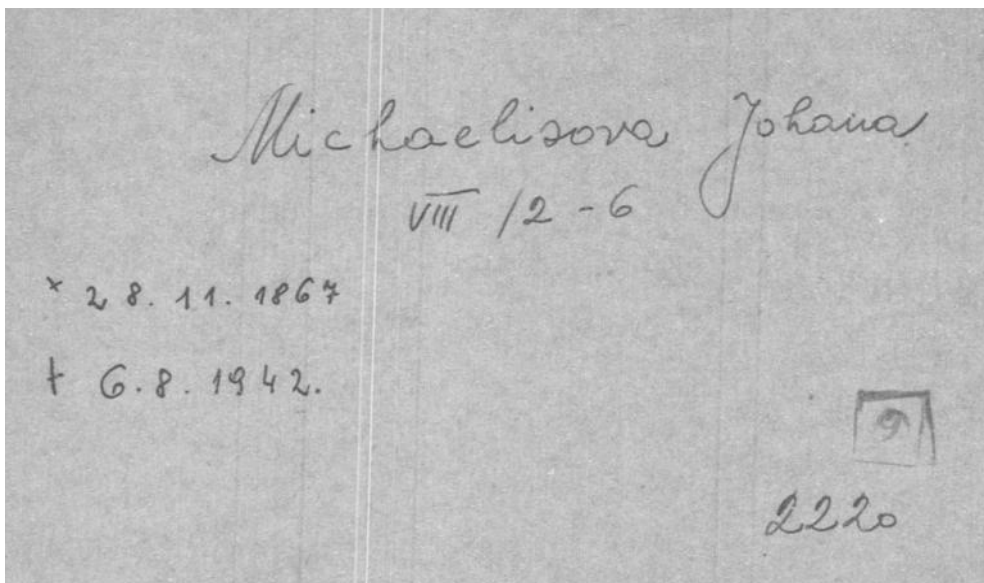 Michaelisova Johana
VIII /2 - 6
× 28. 11. 1867
† 6. 8. 1942.
9
2220